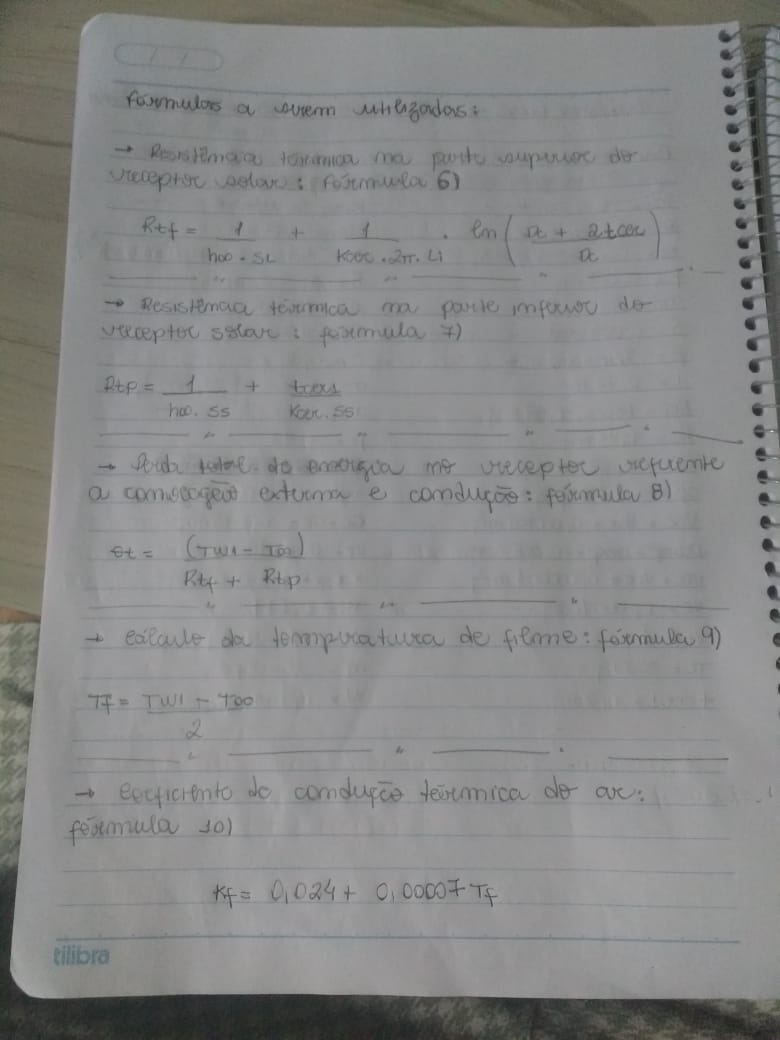 fórmulas a serem utilizadas:
→ Resistência térmica na parte superior do
receptor solar: fórmula 6)
Rtf = 1 / h∞ . SL + 1 / Kcer . 2π . Li . ln ( Dc + 2tcer / Dc )
→ Resistência térmica na parte inferior do
receptor solar: fórmula 7)
Rtp = 1 / h∞ . SS + tcer1 / Kcer . SS
→ Perda total de energia no receptor referente
a convecção externa e condução: fórmula 8)
Qt = (TW1 - T∞) / Rtf + Rtp
→ Cálculo da temperatura de filme: fórmula 9)
Tf = TW1 - T∞ / 2
→ Coeficiente de condução térmica do ar:
fórmula 10)
Kf = 0,024 + 0,00007 Tf
tilibra